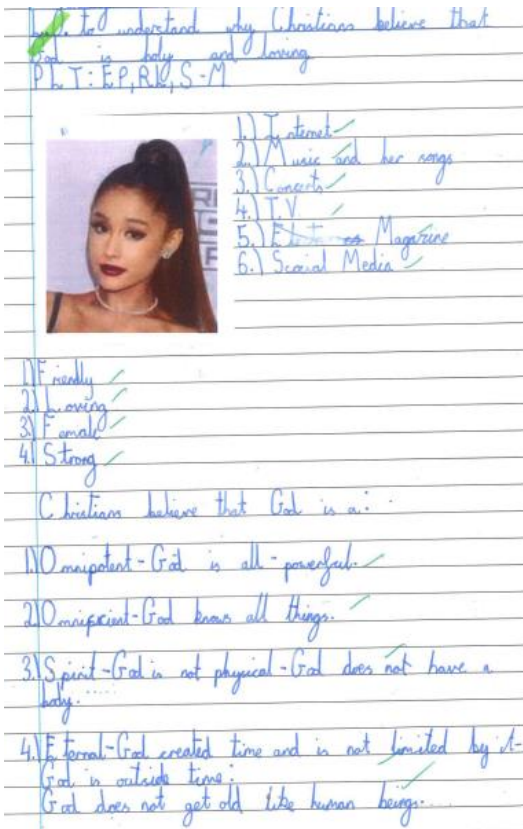 to understand why Christians believe that
God is holy and loving
PLT: EP, RL, S-M
1.) Internet
2.) Music and her songs
3.) Concerts
4.) T.V
5.) Magazine
6.) Scoial Media
1.) Friendly
2.) Loving
3.) Female
4.) Strong
Christians believe that God is a:
1.) Omnipotent - God is all-powerful.
2.) Omniscient - God knows all things.
3.) Spirit - God is not physical - God does not have a
body.
4.) Eternal - God created time and is not limited by it -
God is outside time:
God does not get old like human beings.